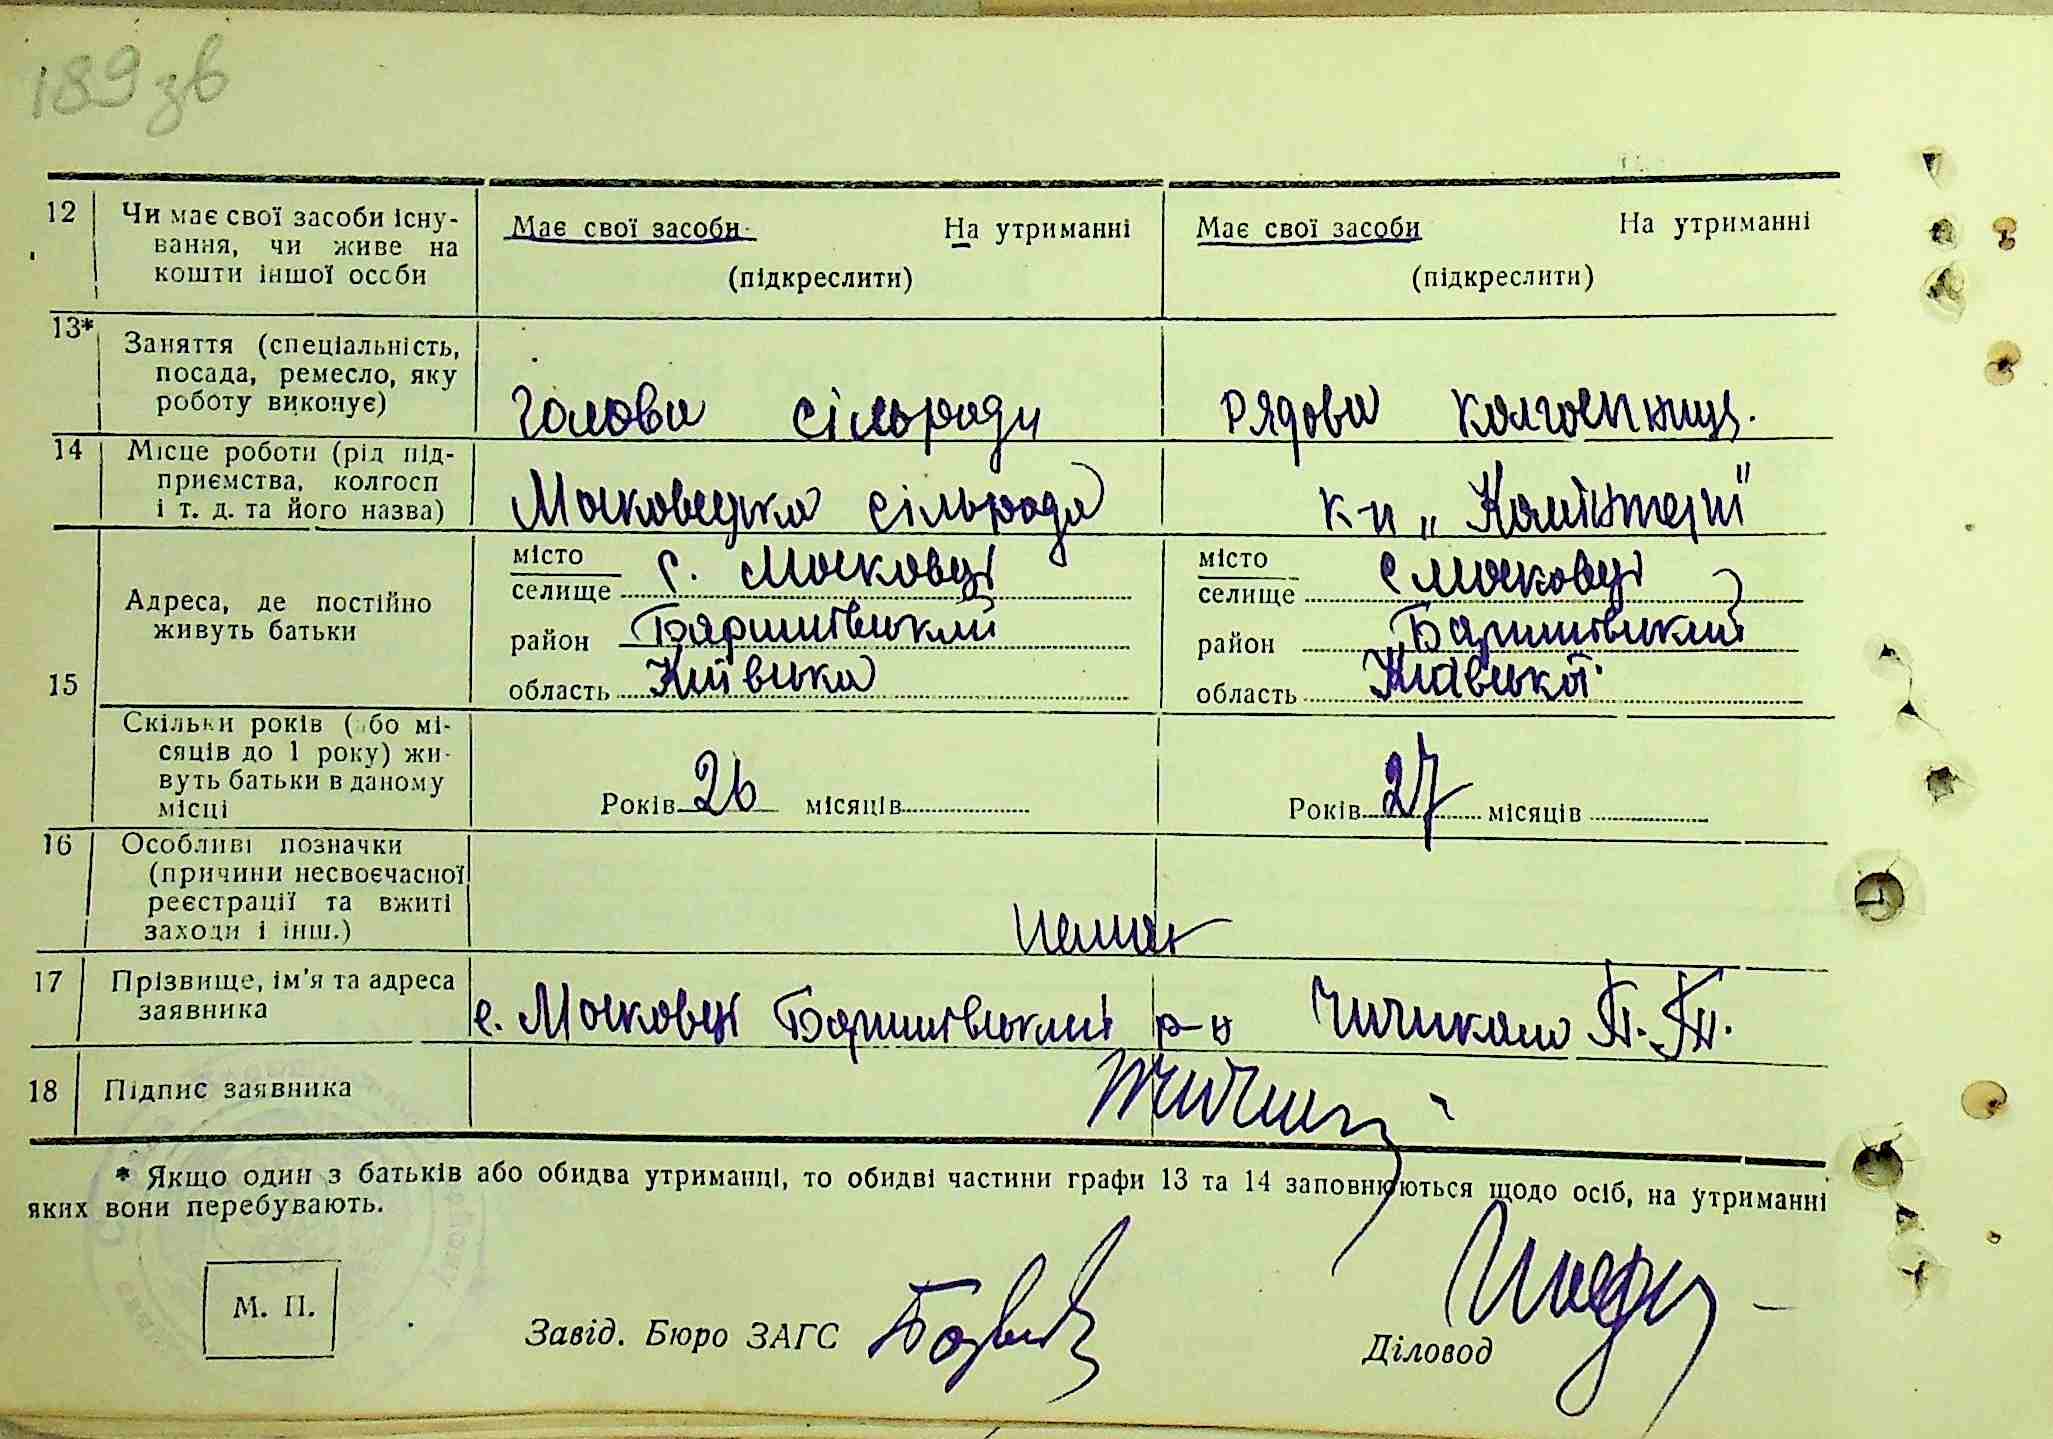 189 зв
12 Чи має свої засоби існу-
вання, чи живе на
кошти іншої особи
Має свої засоби На утриманні
(підкреслити)
Має свої засоби На утриманні
(підкреслити)
13* Заняття (спеціальність,
посада, ремесло, яку
роботу виконує)
Голова сільради
Рядова колгоспниц.
14 Місце роботи (рід під-
приємства, колгосп
і т. д. та його назва)
Московецька сільрада
к-п „Комінтерн"
15 Адреса, де постійно
живуть батьки
місто
селище с. Московці
район Баришівський
область Київська
місто
селище с Московці
район Баришівський
область Київської
Скільки років (або мі-
сяців до 1 року) жи-
вуть батьки в даному
місці
Років 26 місяців
Років 27 місяців
16 Особливі позначки
(причини несвоєчасної
реєстрації та вжиті
заходи і інш.)
немає
17 Прізвище, ім'я та адреса
заявника
с. Московці Баришівський р-н Чичикало П. П.
18 Підпис заявника
* Якщо один з батьків або обидва утриманці, то обидві частини графи 13 та 14 заповнюються щодо осіб, на утриманні
яких вони перебувають.
М. П.
Завід. Бюро ЗАГС
Діловод